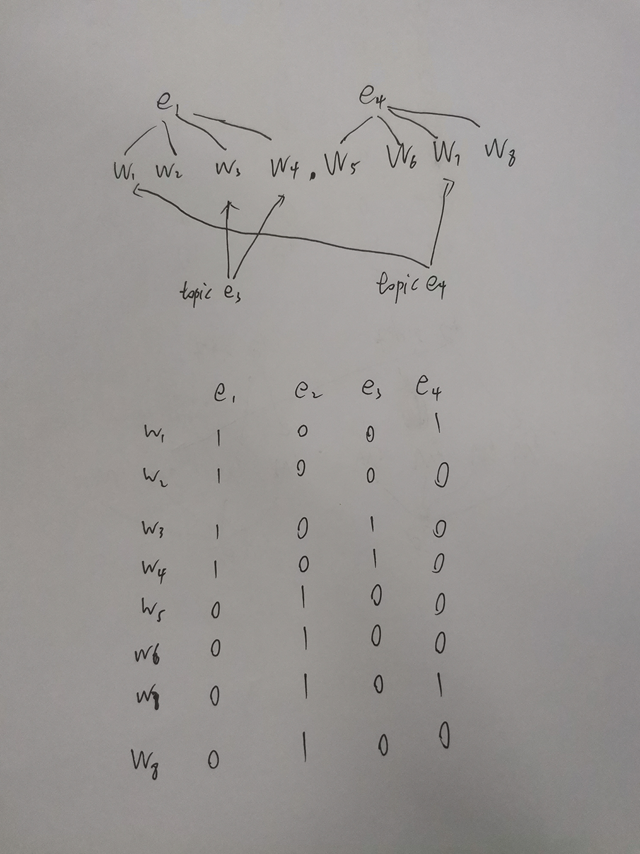 e₁ e₄
w₁ w₂ w₃ w₄ . w₅ w₆ w₇ w₈
topic e₃ topic e₄
e₁ e₂ e₃ e₄
w₁ 1 0 0 1
w₂ 1 0 0 0
w₃ 1 0 1 0
w₄ 1 0 1 0
w₅ 0 1 0 0
w₆ 0 1 0 0
w₇ 0 1 0 1
w₈ 0 1 0 0